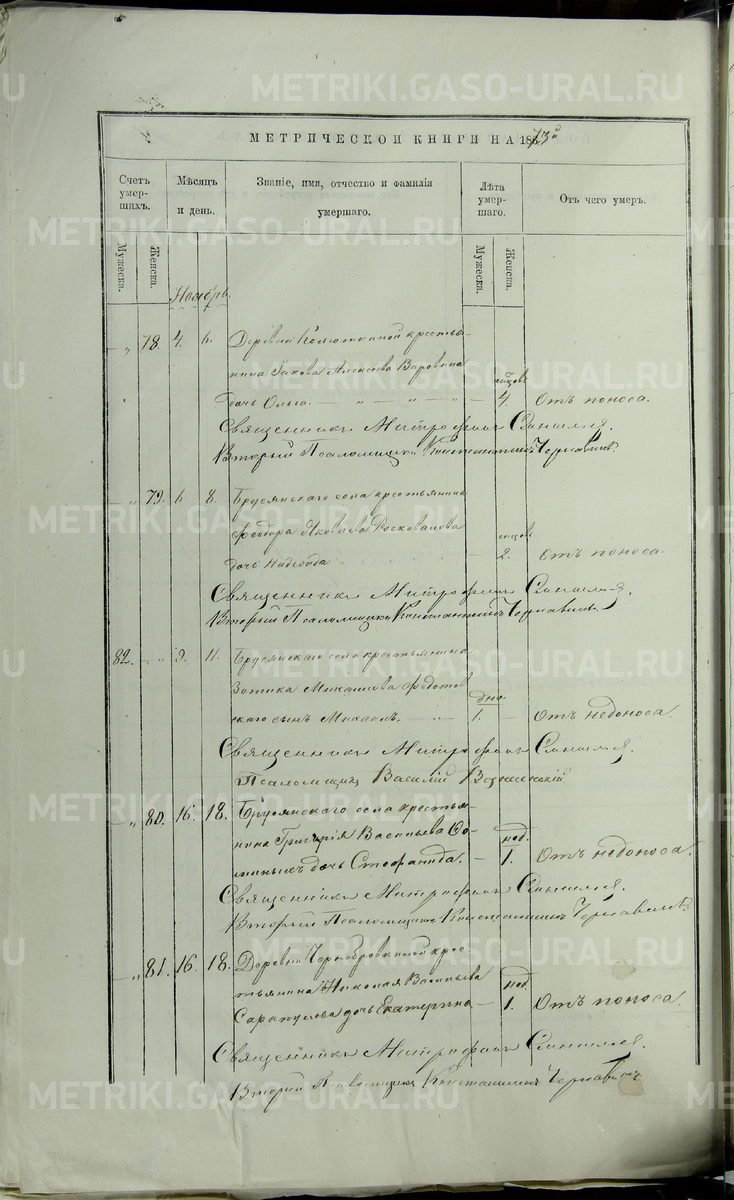 МЕТРИЧЕСКОЙ КНИГИ НА 1873й
Счетъ умер-шихъ.
Мужеска.
Женска.
Мѣсяцъ и день.
Званіе, имя, отчество и фамилія умершаго.
Лѣта умер-шаго.
Мужеска.
Женска.
Отъ чего умеръ.
Ноябрь.
„ 78. 4. 6. Деревни Колюткиной крестья-
нина Іакова Алексѣева Варовина
дочь Ольга. — „ — „ — „ — 4. Отъ поноса.
Священникъ Митрофанъ
Вторый Псаломщикъ Константинъ Чернавинъ.
„ 79. 6. 8. Брусянскаго села крестьянина
Ѳеодора Яковлева
дочь Надежда — 2. Отъ поноса.
Священникъ Митрофанъ
Вторый Псаломщикъ Константинъ Чернавинъ.
82. — „ 9. 11. Брусянскаго села крестьянина
Зотика Михаилова Ѳедотов-
скаго сынъ Михаилъ. — „ — дня 1. — Отъ недоноса.
Священникъ Митрофанъ
Псаломщикъ Василій
„ 80. 16. 18. Брусянскаго села крестья-
нина Григорія Васильева Ѳо-
миныхъ дочь Стефанида. — нед. 1. Отъ недоноса.
Священникъ Митрофанъ
Вторый Псаломщикъ Константинъ Чернавинъ.
„ 81. 16. 18. Деревни Чернобровкиной крес-
тьянина Николая Васильева
Сарапулова дочь Екатерина — нед. 1. Отъ поноса.
Священникъ Митрофанъ
Вторый Псаломщикъ Константинъ Чернавинъ
METRIKI.GASO-URAL.RU